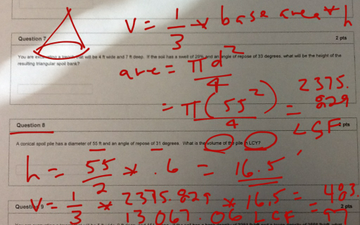 V = 1/3 * base area * h
Question 7
2 pts
You are excavating a that will be 4 ft wide and 7 ft deep. If the soil has a swell of 25% and an angle of repose of 33 degrees, what will be the height of the
resulting triangular spoil bank?
area = πd²/4
= π(55²)/4 = 2375.829 SF
Question 8
pts
A conical spoil pile has a diameter of 55 ft and an angle of repose of 31 degrees. What is the volume of the pile in LCY?
h = 55/2 * .6 = 16.5'
V = 1/3 * 2375.829 * 16.5 = 483.
13,067.06 LCF
Question 9
pts